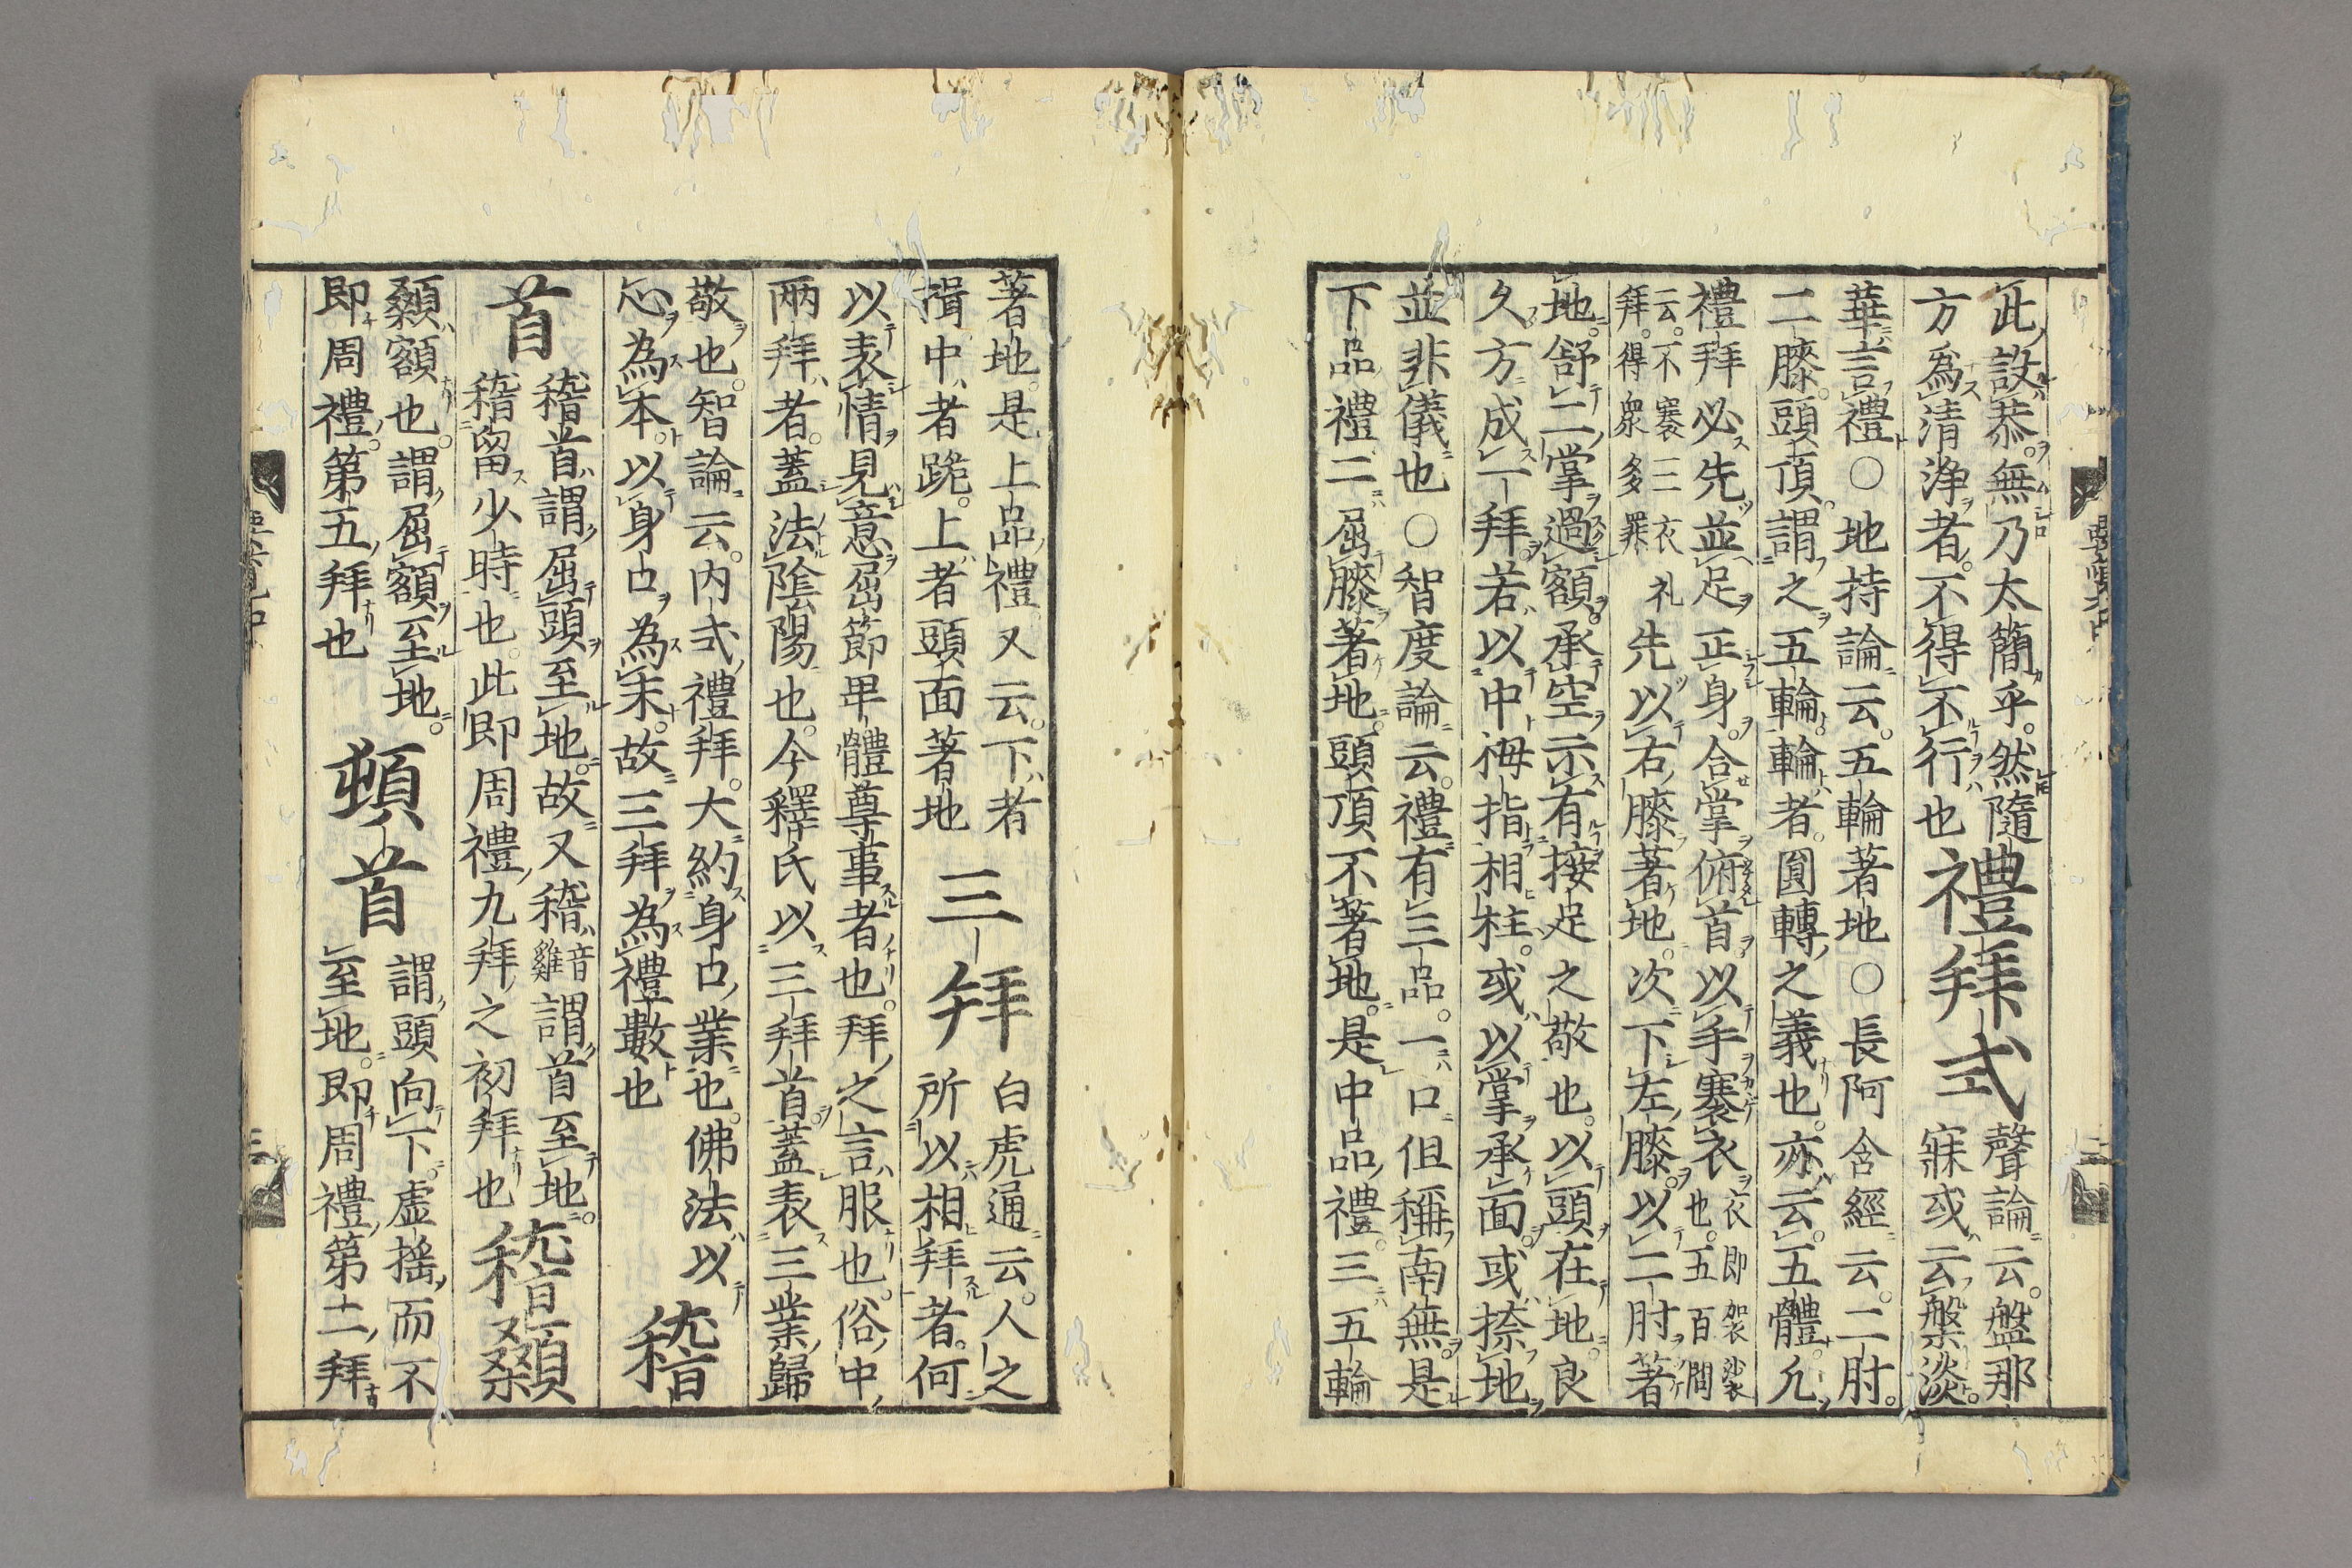 此設恭無乃太簡乎然隨
方爲清淨者不得不行也
禮拜式
聲論云盤那
寐或云槃淡
華言禮○地持論云五輪著地○長阿含經云二肘
二膝頭頂謂之五輪輪者圓轉之義也亦云五體凡
禮拜必先並足正身合掌俯首以手褰衣
衣即袈裟衣
也五百問
云不褰三衣礼
拜得衆多罪
先以右膝著地次下左膝以二肘著
地舒二掌過額承空示有接足之敬也以頭在地良
久方成一拜若以中拇指相拄或以掌承面或捺地
並非儀也○智度論云禮有三品一口但稱南無是
下品禮二屈膝著地頭頂不著地是中品禮三五輪
著地是上品禮又云下者
揖中者跪上者頭面著地
三拜
白虎通云人之
所以相拜者何
以表情見意屈節卑體尊事者也拜之言服也俗中
兩拜者蓋法陰陽也今釋氏以三拜首蓋表三業歸
敬也智論云内式禮拜大約身口業也佛法以
心爲本以身口爲末故三拜爲禮數也
稽
首
稽首謂屈頭至地故又稽
音
雞
謂首至地
稽留少時也此即周禮九拜之初拜也
稽顙
顙額也謂屈額至地
即周禮第五拜也
頓首
謂頭向下虛搖而不
至地即周禮第二拜